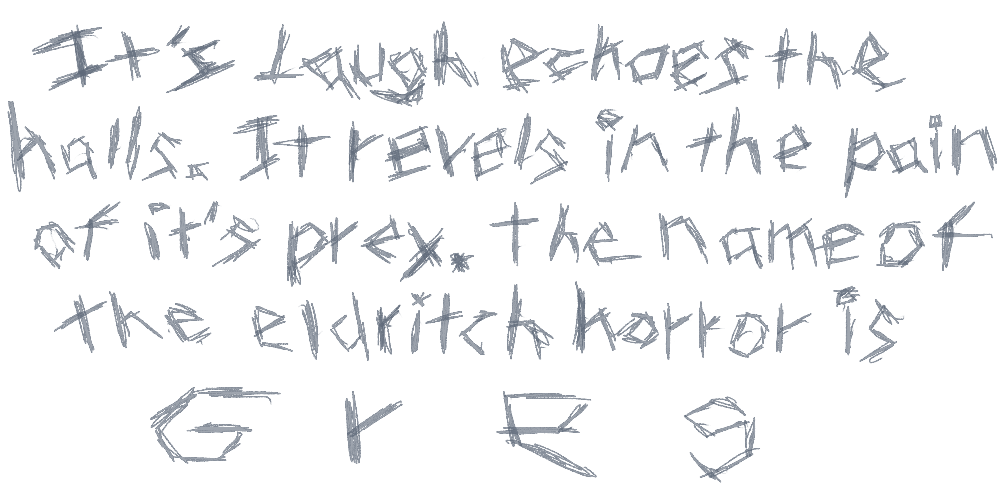 It's Laugh echoes the
halls. It revels in the pain
of it's prex. the name of
the eldritch horror is
Greg